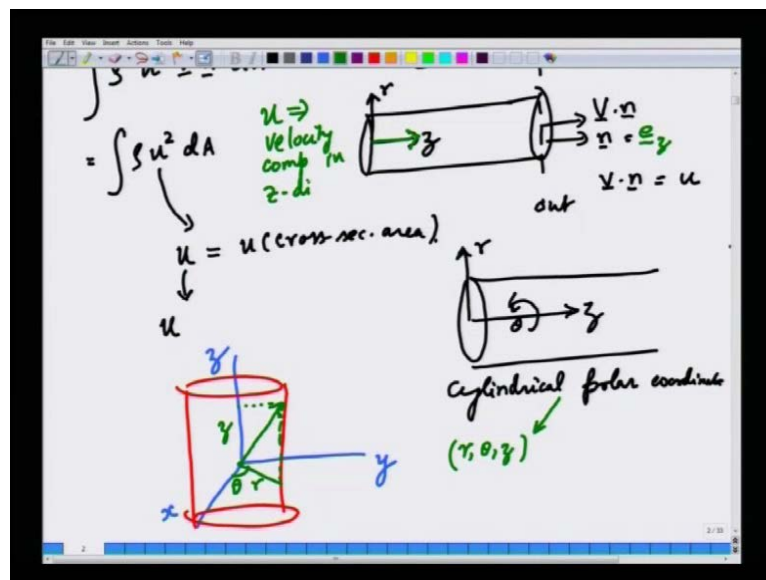 File Edit View Insert Actions Tools Help
r
u ⇒
velocity
comp in
z-di
z
V·n
n = e_z
V·n = u
out
= ∫ρu² dA
u = u(cross-sec. area)
u
r
θ
z
cylindrical polar coordinate
(r, θ, z)
z
z
y
θ r
x
2/33
2